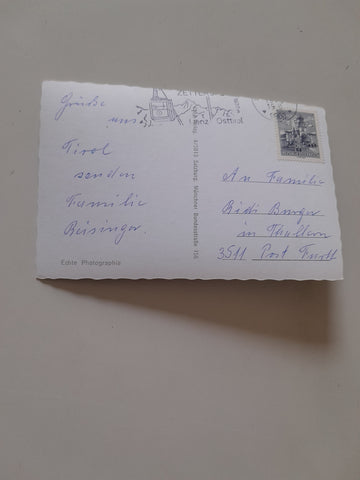 Grüße
aus
Tirol
senden
Familie
Reisinger.
Echte Photographie
ZETTER
Lienz Osttirol
Salzburg, Münchner Bundesstraße
An Familie
Burger
in Thallern
3511 Post Furth